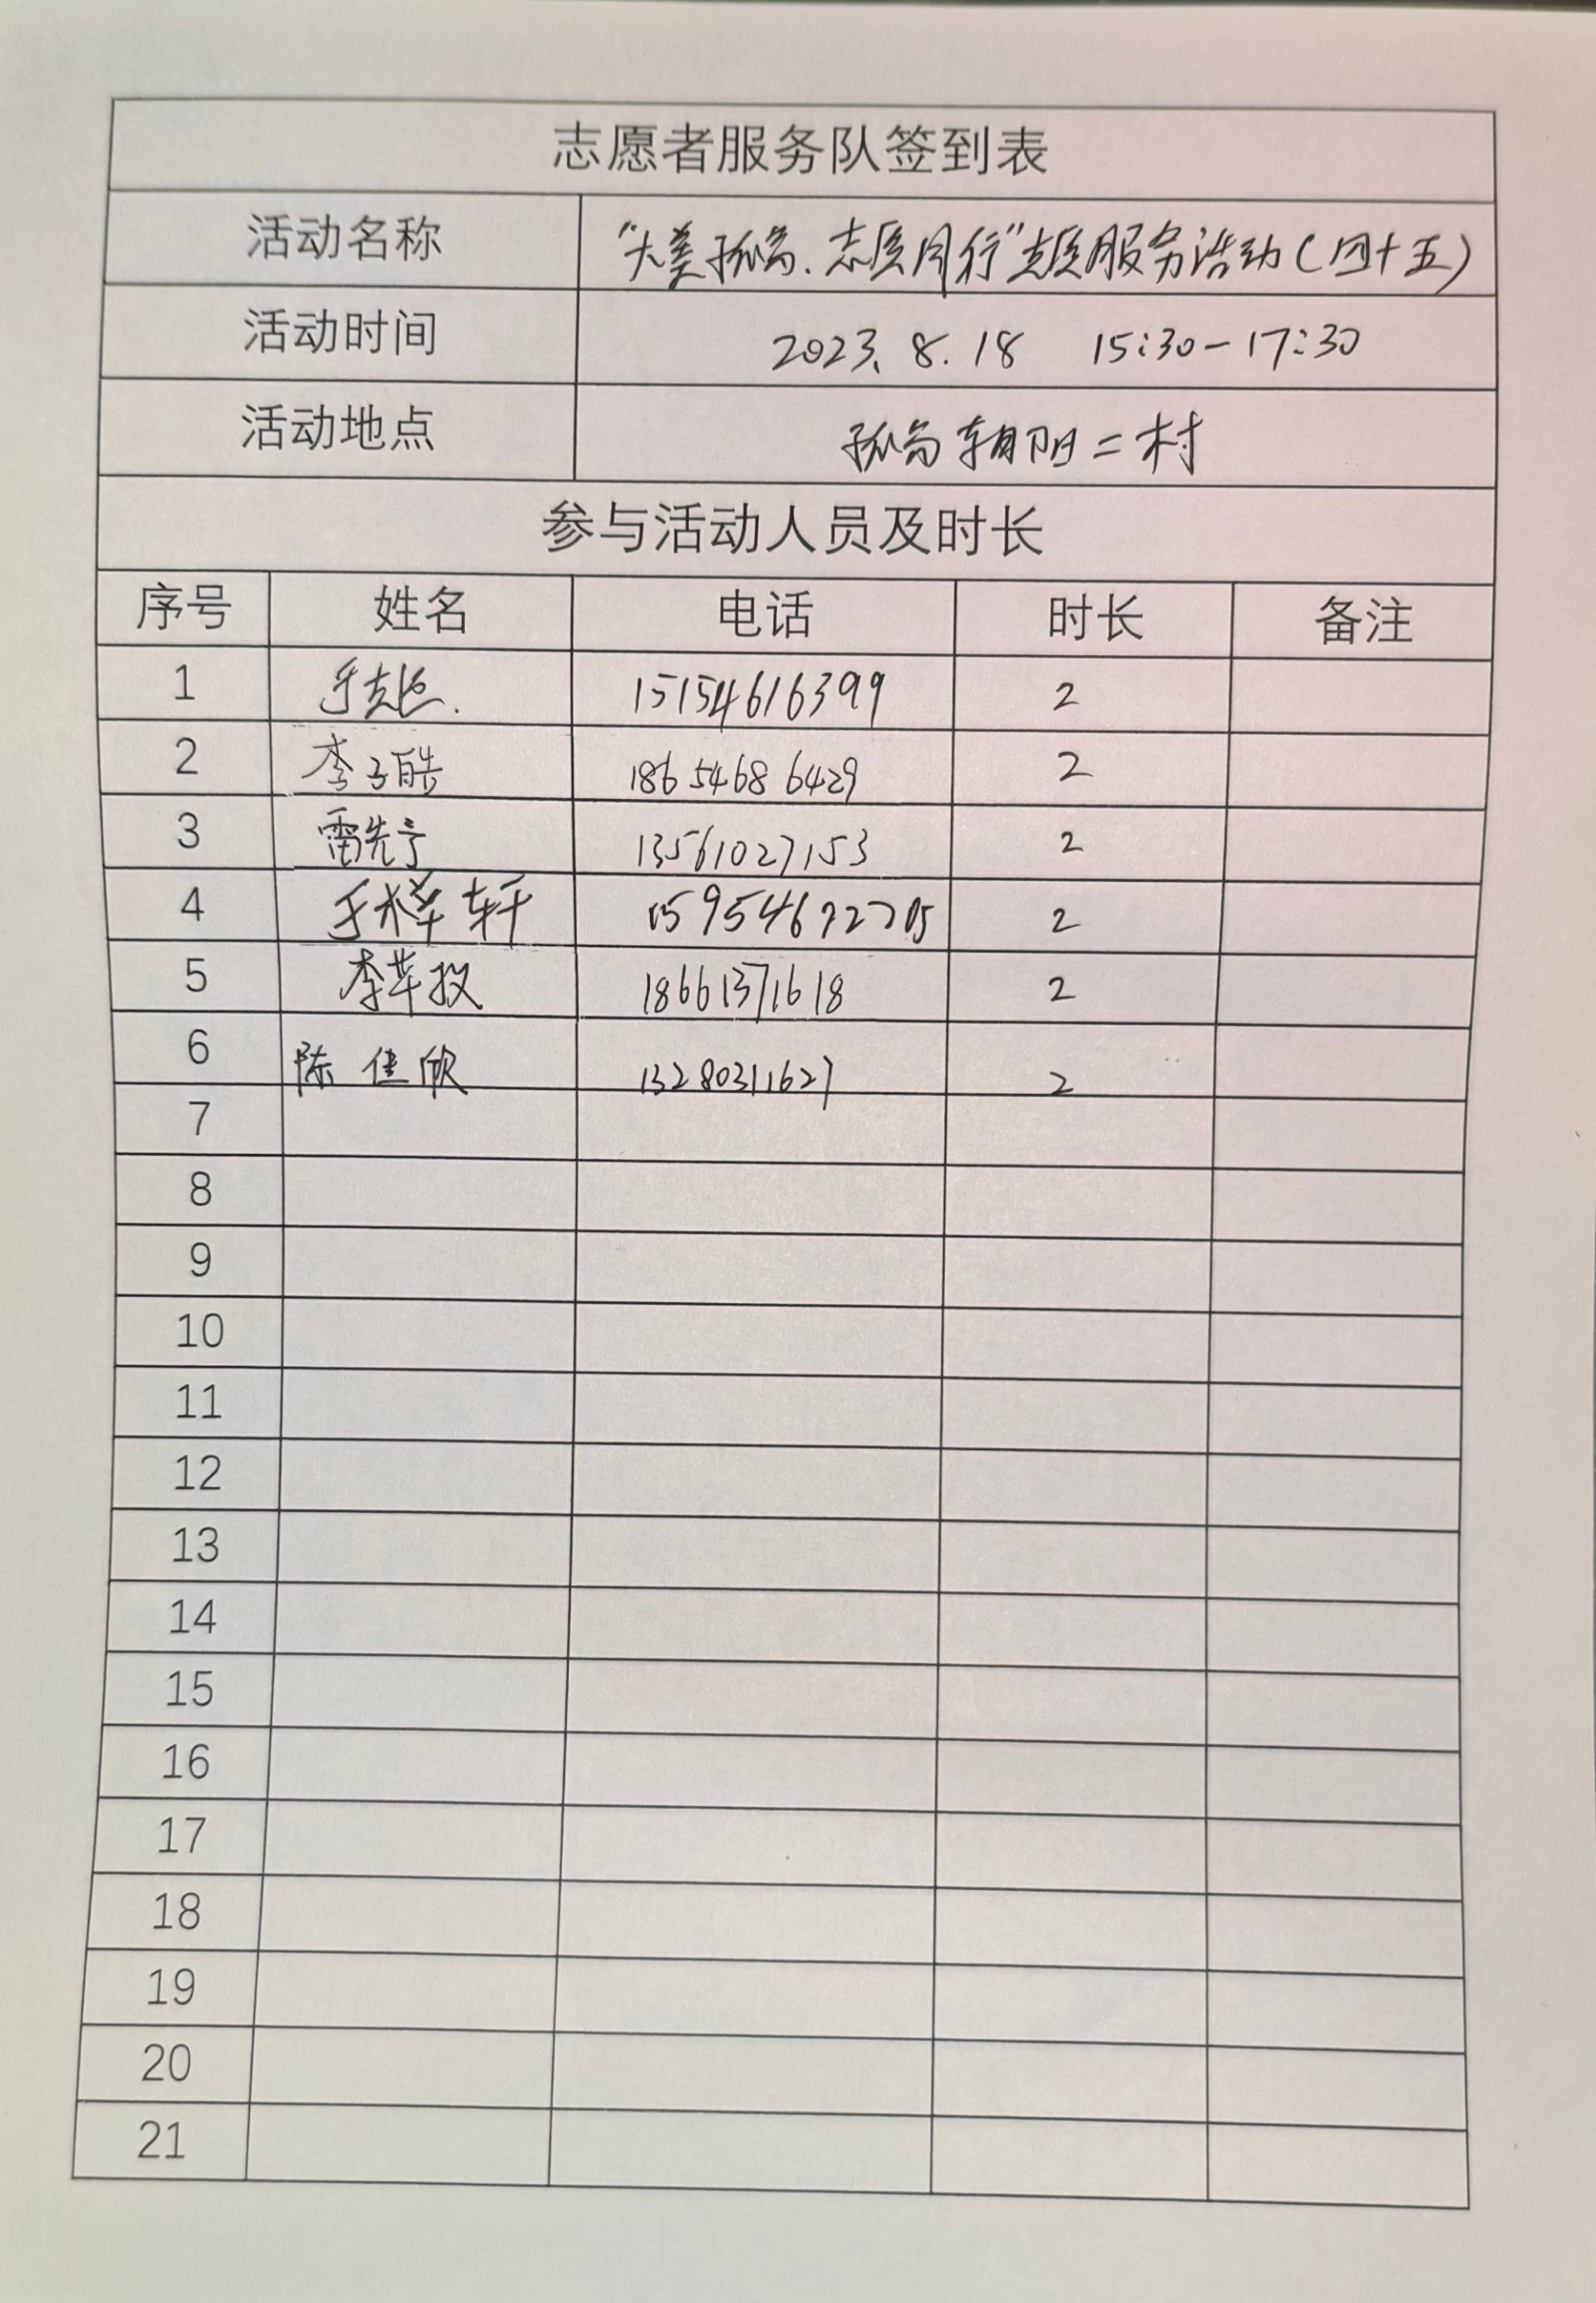 志愿者服务队签到表
活动名称 "大美孤岛.志愿同行"志愿服务活动(四十五)
活动时间 2023.8.18 15:30-17:30
活动地点 孤岛朝阳二村
参与活动人员及时长
序号 姓名 电话 时长 备注
1 15154616399 2
2 李子皓 18654686429 2
3 雷先宁 13561027153 2
4 于梓轩 2
5 18661371618 2
6 陈佳欣 13280311627 2
7
8
9
10
11
12
13
14
15
16
17
18
19
20
21